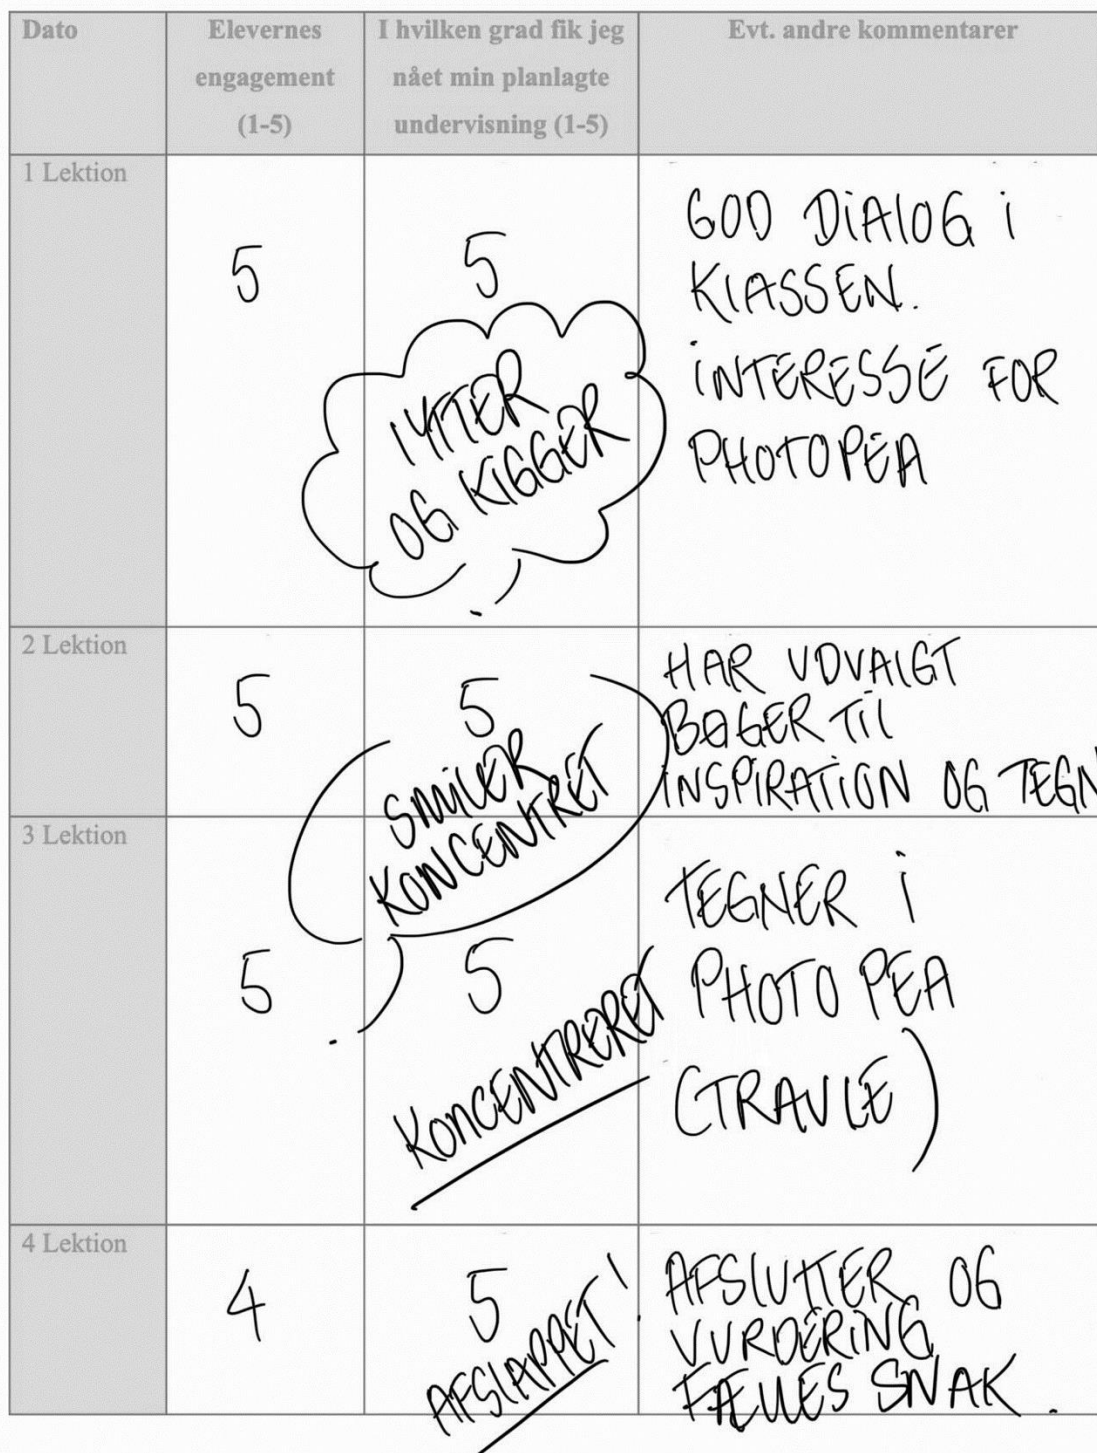 Dato
Elevernes
engagement
(1-5)
I hvilken grad fik jeg
nået min planlagte
undervisning (1-5)
Evt. andre kommentarer
1 Lektion
5
5
LYTTER
OG KIGGER
GOD DIALOG I
KLASSEN.
INTERESSE FOR
PHOTOPEA
2 Lektion
5
5
SMILER
KONCENTRET
HAR UDVALGT
BØGER TIL
INSPIRATION OG TEGN
3 Lektion
5
5
KONCENTRERET
TEGNER I
PHOTO PEA
(TRAVLE)
4 Lektion
4
5
AFSLAPPET!
AFSLUTTER OG
VURDERING
FÆLLES SNAK.